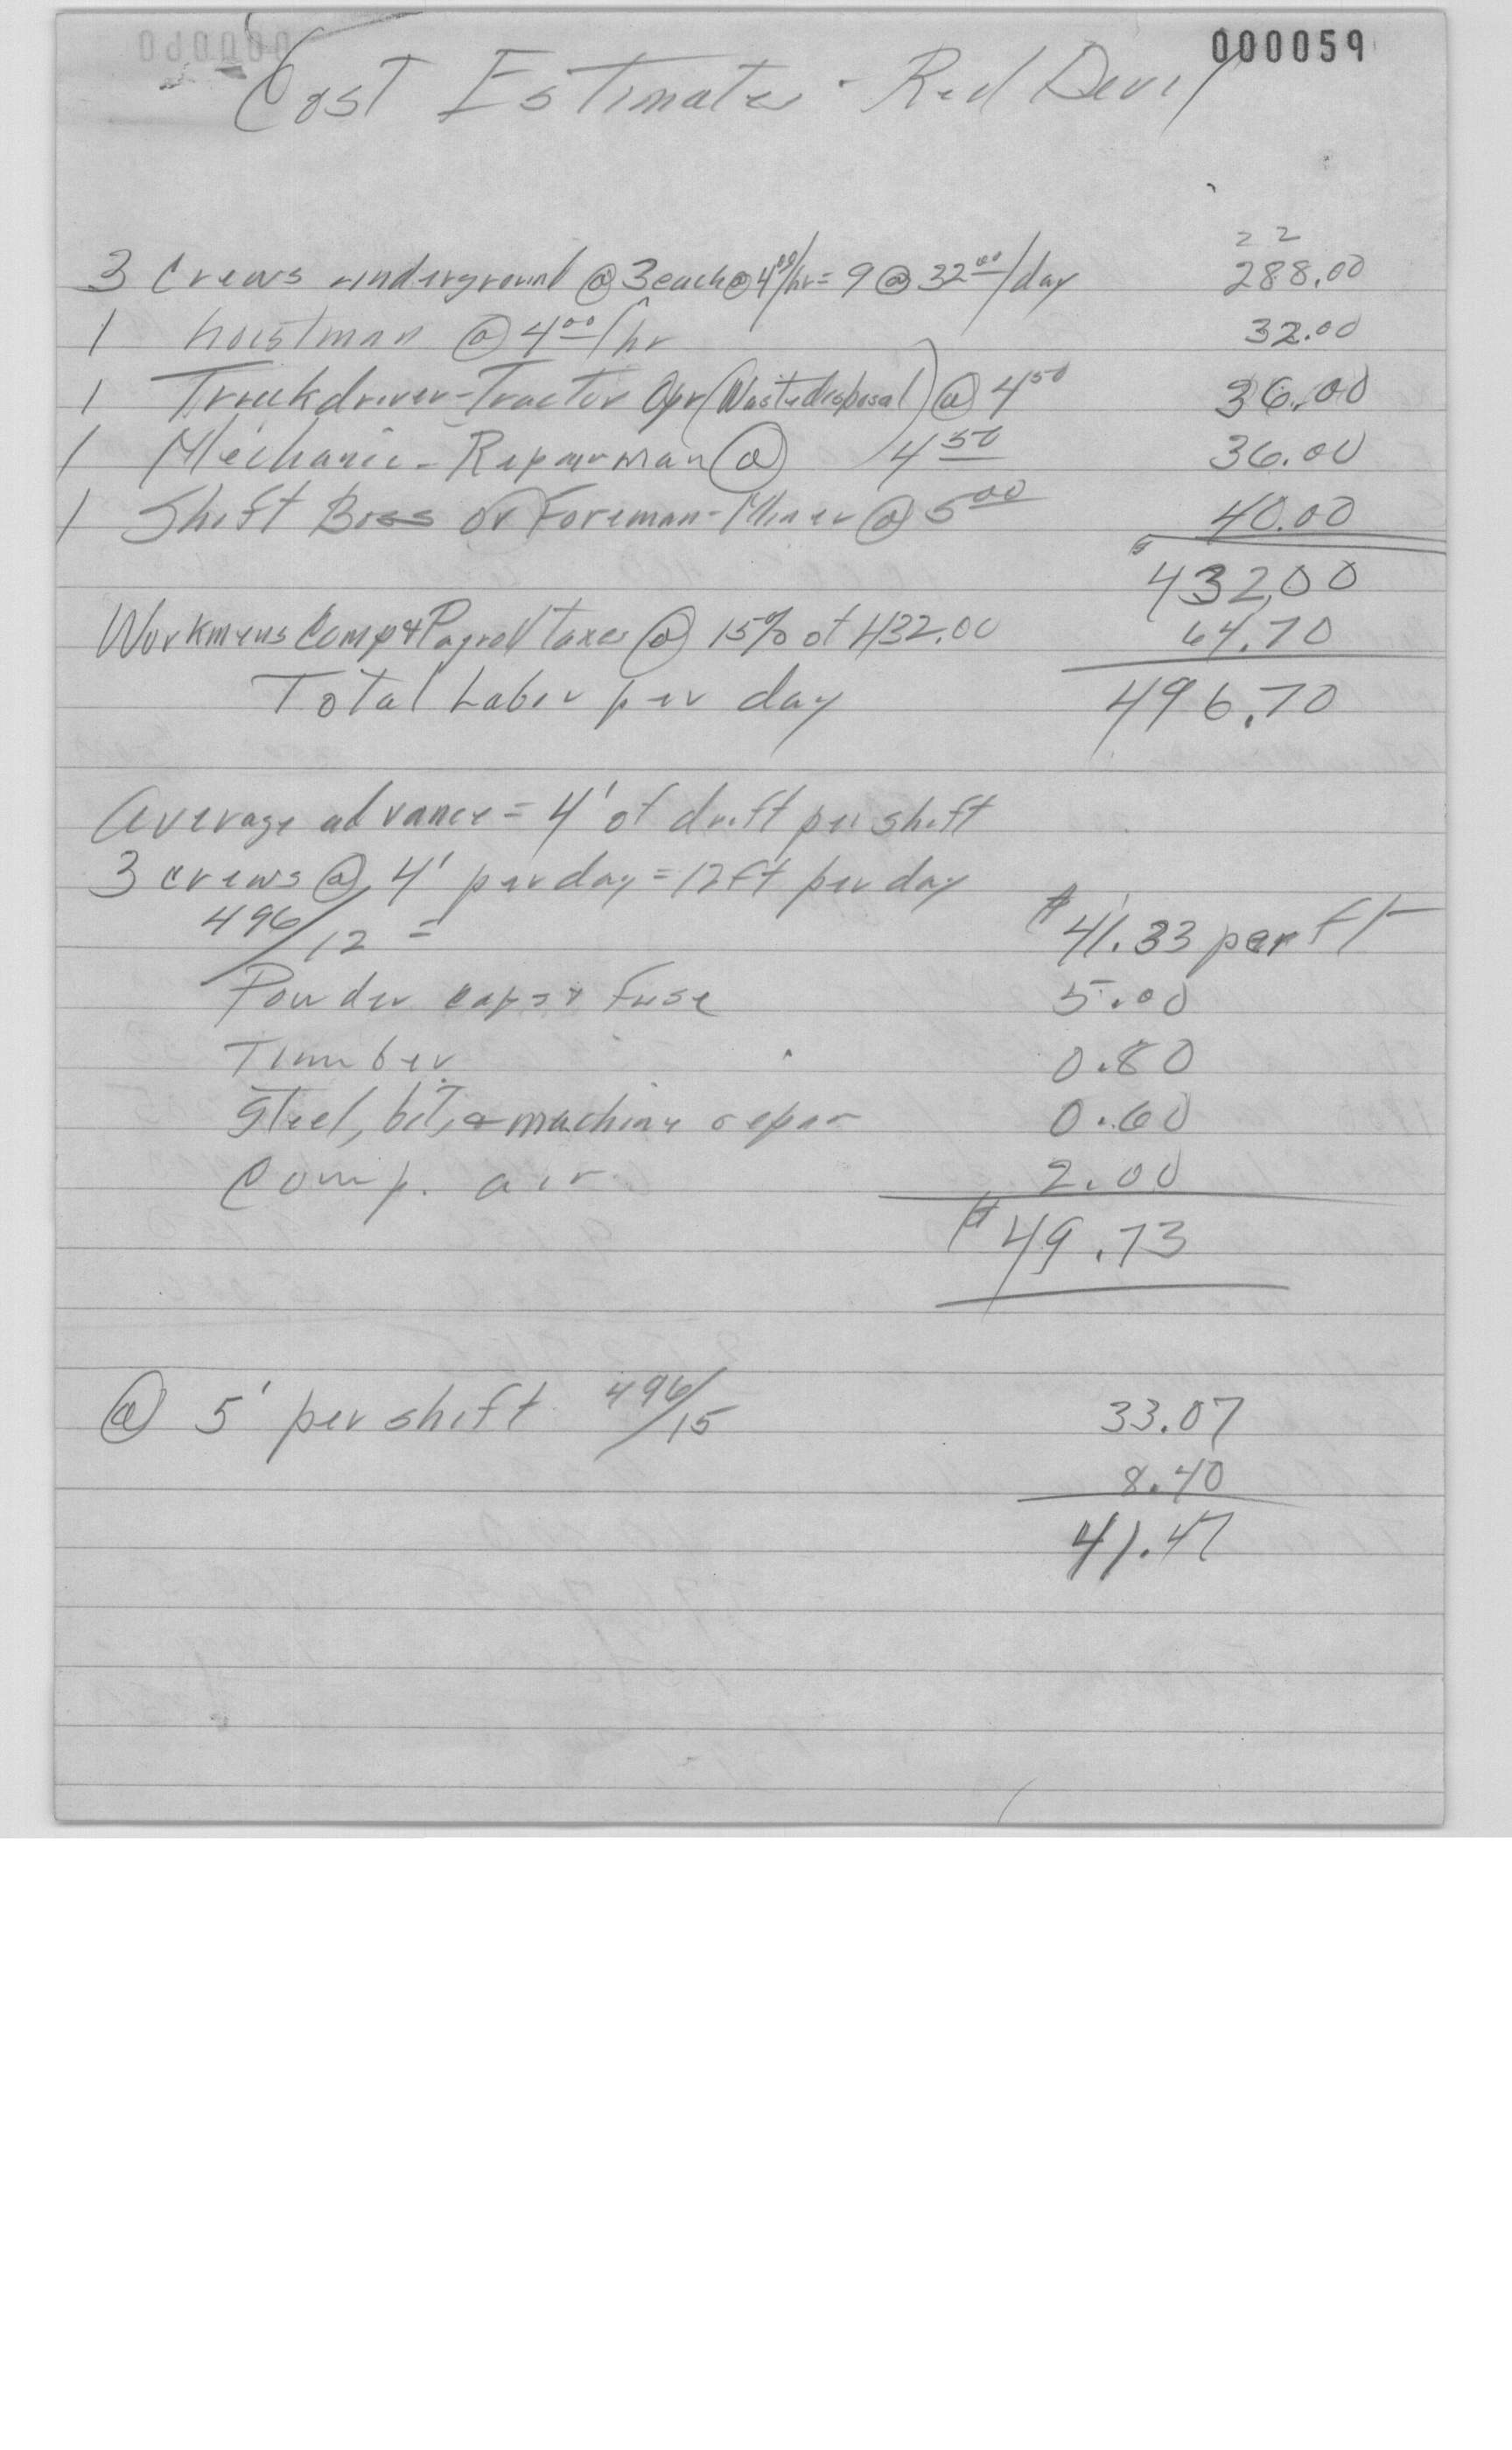 000059
Cost Estimates - Red Devil
2 2
3 Crews underground @ 3 each @ 4.00/hr = 9 @ 32.00/day 288.00
1 hoistman @ 4.00/hr 32.00
1 Truckdriver-Tractor Opr (Waste disposal) @ 4.50 36.00
1 Mechanic - Repairman @ 4.50 36.00
1 Shift Boss or Foreman-Miner @ 5.00 40.00
$ 432.00
Workmens Comp & Payroll taxes @ 15% of 432.00 64.70
Total Labor per day 496.70
Average advance = 4' of drift per shift
3 crews @ 4' per day = 12 ft per day
496/12 = $ 41.33 per ft
Powder caps & Fuse 5.00
Timber 0.80
Steel, bit, & machine repair 0.60
Comp. air 2.00
$ 49.73
@ 5' per shift 496/15 33.07
8.40
41.47